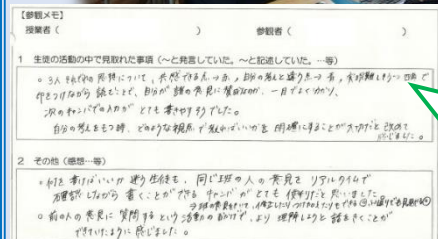 【参観メモ】
授業者（　　　　　）　参観者（　　　　　）
1 生徒の活動の中で見取れた事項（～と発言していた。～と記述していた。…等）
○3人それぞれの感想について、共感できる点→赤、自分の考えと違う点→青、
印をつけながら読むことで、自分が誰の意見に賛成なのか、一目でよく分かり、
次のキャンバでの入力がとても書きやすそうでした。
自分の考えをもつ時、どのような視点で考えればいいかを明確にすることが大切だと改めて
感じました。
2 その他（感想…等）
○何を書けばいいか迷う生徒も、同じ班の人の意見をリアルタイムで
確認しながら書くことができるキャンバがとても便利だと思いました。
○前の人の意見に質問するという活動のおかげで、より理解しようと話をきくことが
できていたように感じました。